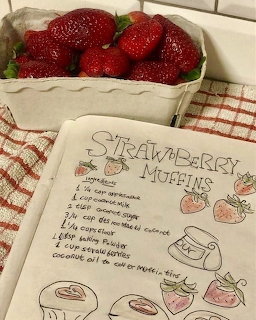 STRAWBERRY
MUFFINS
Ingredients
1 1/4 cup applesauce
1 cup coconut milk
2 tbsp coconut sugar
3/4 cup dessicated coconut
1 1/4 cups flour
1 tbsp baking powder
1 cup strawberries
coconut oil to cover muffin tins